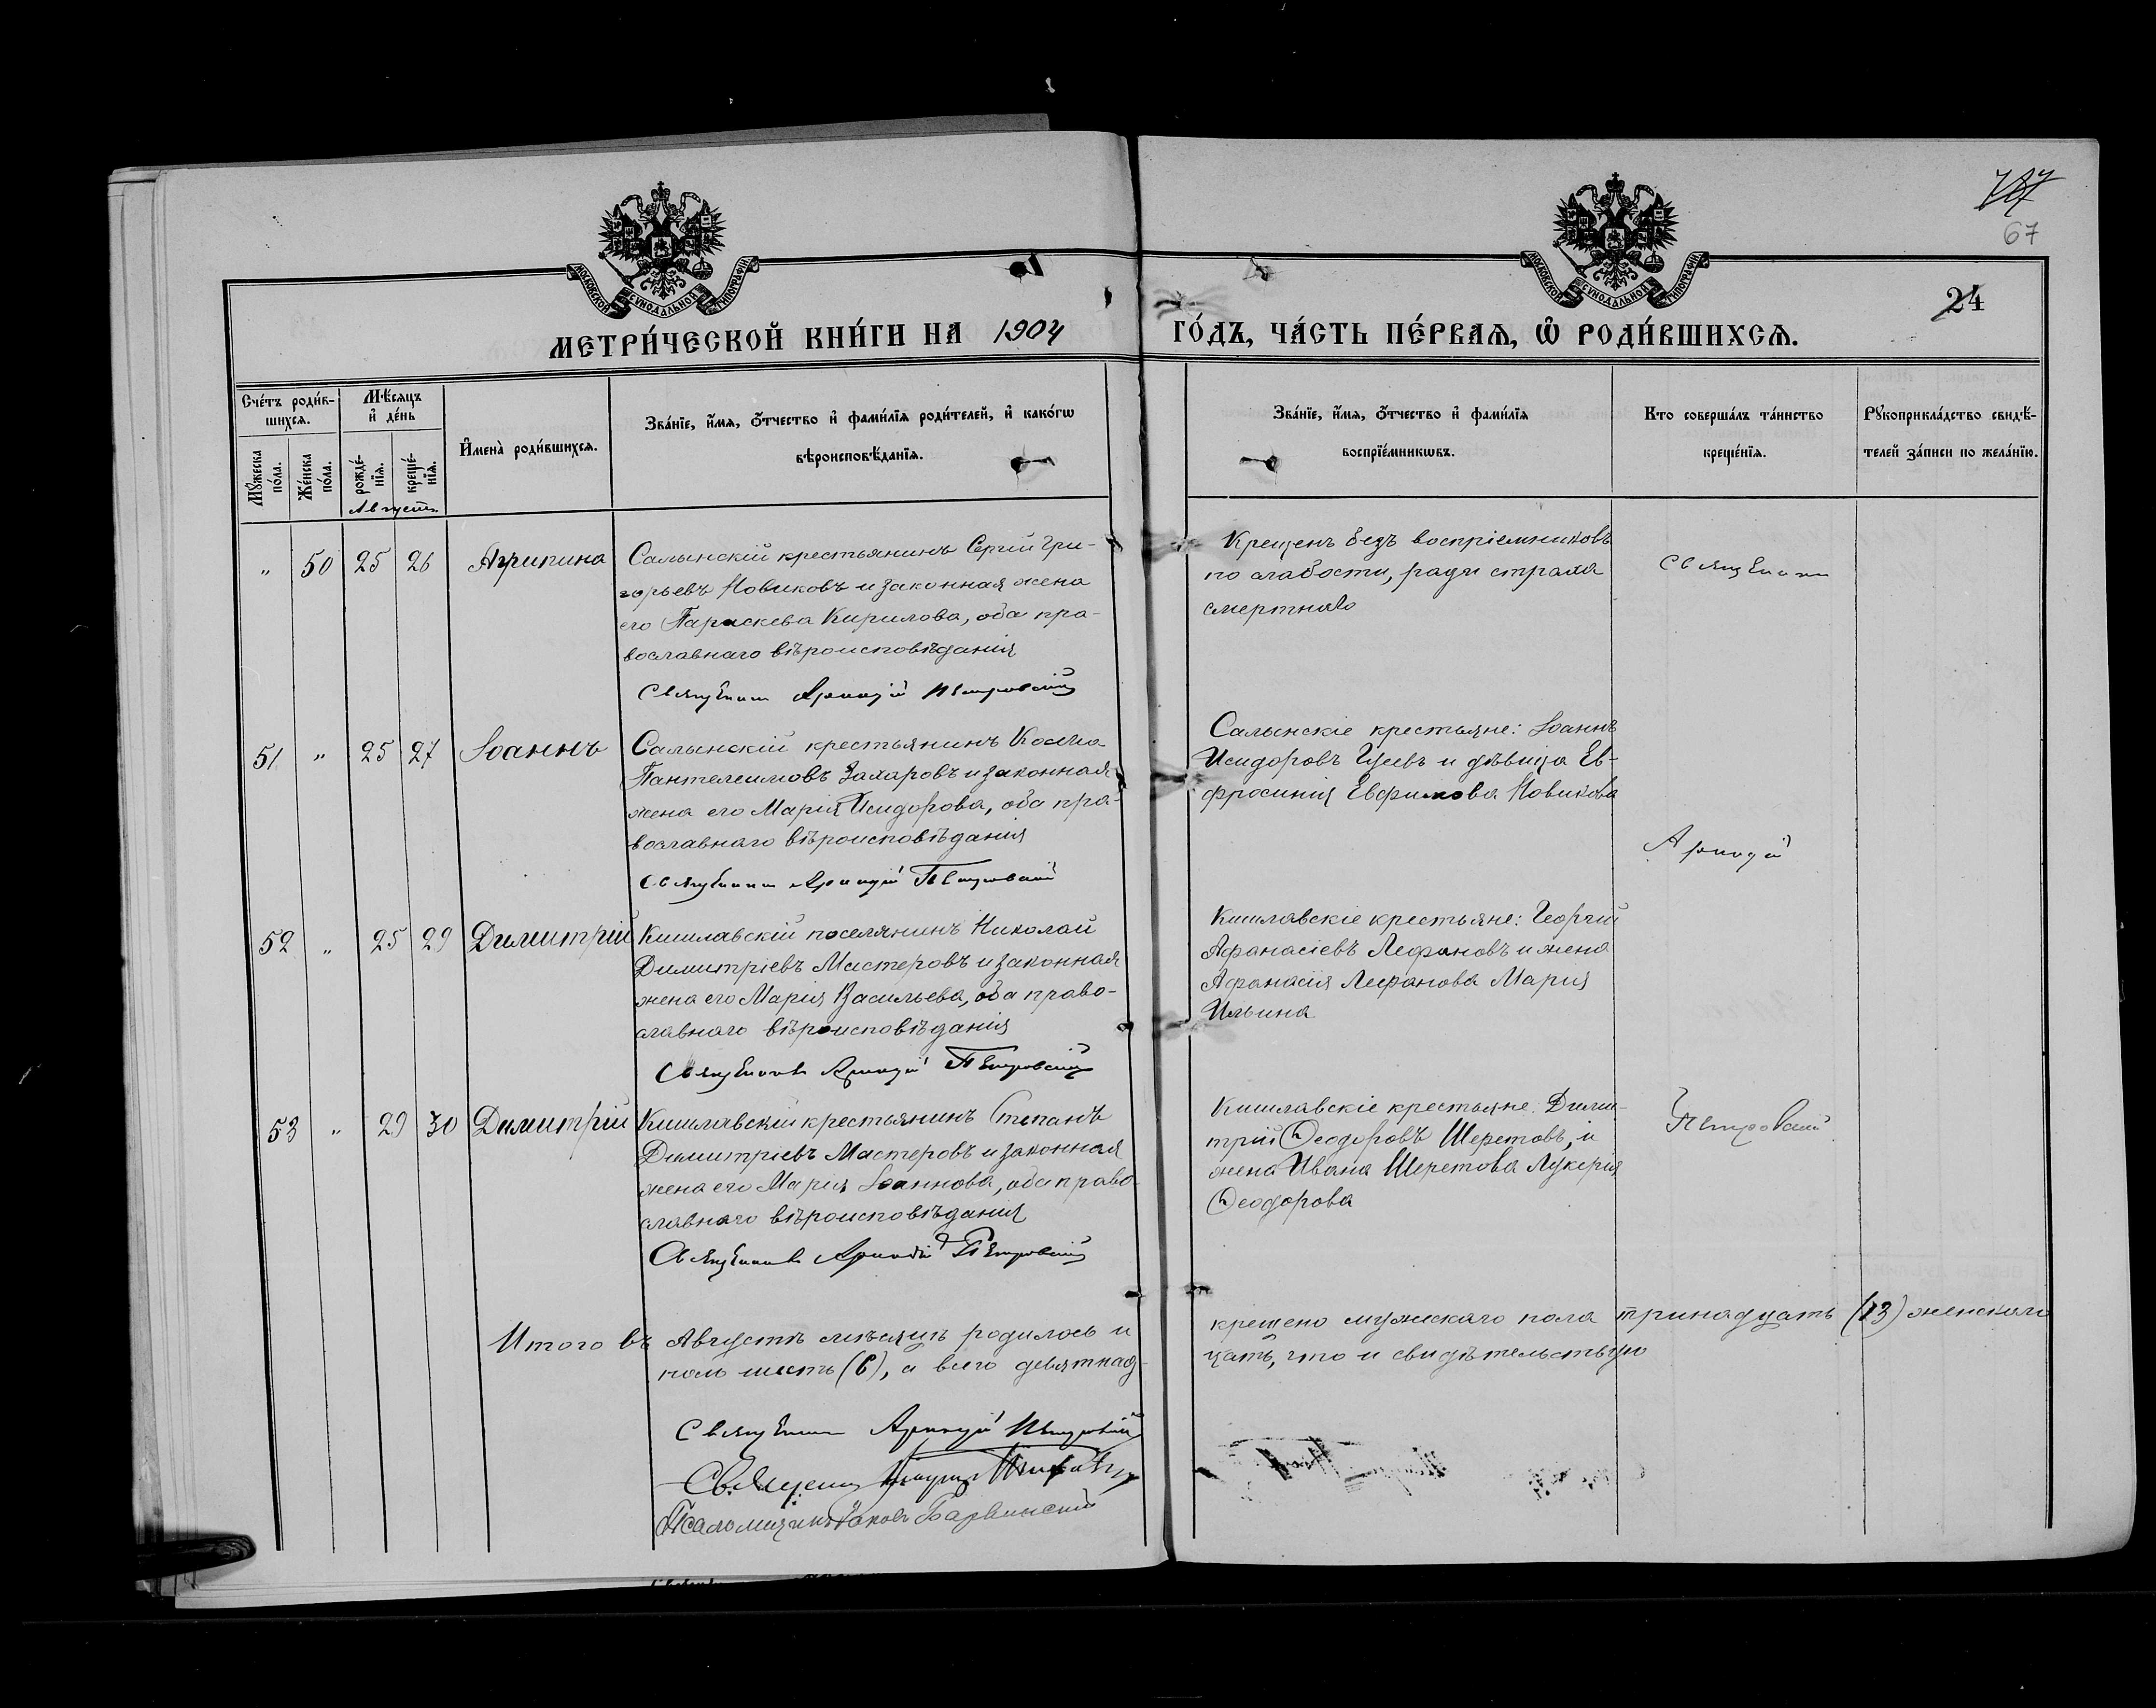 67
24
МОСКОВСКОЙ СѴНОДАЛЬНОЙ ТИПОГРАФІИ
МОСКОВСКОЙ СѴНОДАЛЬНОЙ ТИПОГРАФІИ
МЕТРИ́ЧЕСКОЙ КНИ́ГИ НА 1904 ГО́ДЪ, ЧА́СТЬ ПЕ́РВАѦ, Ѽ РОДИ́ВШИХСѦ.
Сче́тъ роди́в-
шихсѧ.
Мꙋжеска по́ла.
Же́нска по́ла.
Мѣ́сѧцъ
и҆ де́нь
рожде́-
нїѧ.
креще́-
нїѧ.
Августъ
И҆мена̀ роди́вшихсѧ.
Зва́нїе, и҆́мѧ, ѻ҆́тчество и҆ фами́лїѧ роди́телей, и҆ како́гѡ
вѣроисповѣ́данїѧ.
Зва́нїе, и҆́мѧ, ѻ҆́тчество и҆ фами́лїѧ
воспрїе́мникѡвъ.
Кто соверша́лъ та́инство
креще́нїѧ.
Рꙋкоприкла́дство свидѣ́-
телей за́писи по жела́нїю.
„ 50 25 26 Агрипина
Салынскій крестьянинъ Сергій Гри-
горьевъ Новиковъ и законная жена
его Параскева Кирилова, оба пра-
вославнаго вѣроисповѣданія
Священникъ Аркадій Петровскій
Крещенъ безъ воспріемниковъ
по слабости, ради страха
смертнаго
Священникъ
51 „ 25 27 Іоаннъ
Салынскій крестьянинъ Косма
Пантелеимовъ Захаровъ и законная
жена его Марія Исидорова, оба пра-
вославнаго вѣроисповѣданія
Священникъ Аркадій Петровскій
Салынскіе крестьяне: Іоаннъ
Исидоровъ Гусевъ и дѣвица Ев-
фросинія Евфимова Новикова
Аркадій
52 „ 25 29 Димитрій
Кишлавскій поселянинъ Николай
Димитріевъ Мастеровъ и законная
жена его Марія Васильева, оба право-
славнаго вѣроисповѣданія
Священникъ Аркадій Петровскій
Кишлавскіе крестьяне: Георгій
Афанасіевъ Лефановъ и жена
Афанасія Лефанова Марія
Ильина
53 „ 29 30 Димитрій
Кишлавскій крестьянинъ Степанъ
Димитріевъ Мастеровъ и законная
жена его Марія Іоаннова, оба право-
славнаго вѣроисповѣданія
Священникъ Аркадій Петровскій
Кишлавскіе крестьяне: Дими-
трій Ѳеодоровъ Шеретовъ, и
жена Ивана Шеретова Лукерія
Ѳеодорова
Петровскій
Итого въ Августѣ мѣсяцѣ родилось и крещено мужскаго пола тринадцать (13) женскаго
пола шесть (6), а всего девятнад-цать, что и свидѣтельствую
Священникъ Аркадій Петровскій
Священникъ
Псаломщикъ Іаковъ Барвинскій